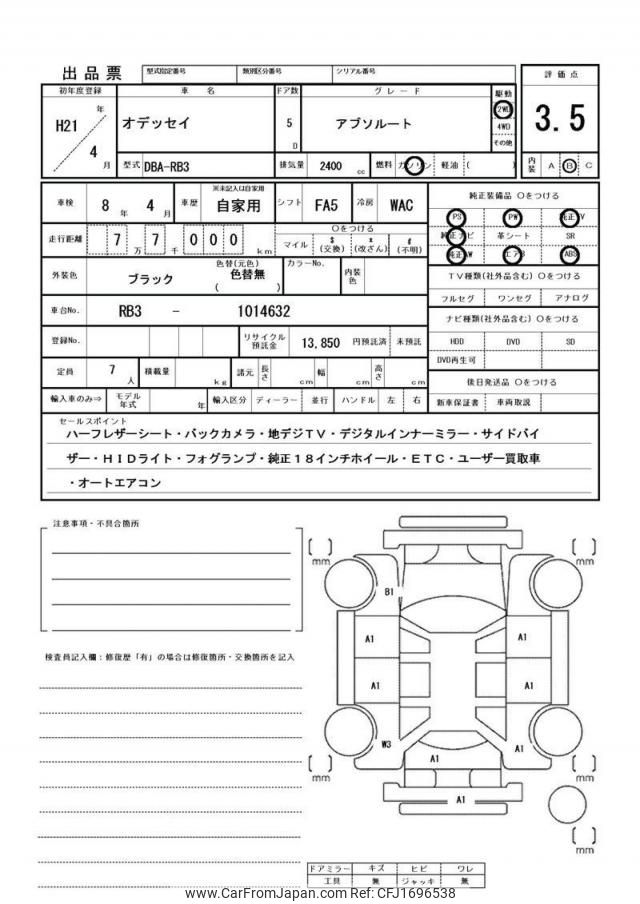 出品票 型式指定番号 類別区分番号 シリアル番号 評価点
初年度登録 車名 ドア数 グレード 駆動
H21年 オデッセイ 5D アブソルート 2WD 3.5
4月 4WD
その他
型式 DBA-RB3 排気量 2400cc 燃料 ガソリン 軽油 ( ) 内装 A B C
車検 8年 4月 車歴 ※未記入は自家用 自家用 シフト FA5 冷房 WAC 純正装備品 ○をつける
PS PW 純正TV
走行距離 7万 7千 000km ○をつける マイル $(交換) x(改ざん) #(不明) 純正ナビ 革シート SR
純正AW エアB ABS
外装色 ブラック 色替(元色) 色替無 ( ) カラーNo. 内装色 TV種類(社外品含む) ○をつける
フルセグ ワンセグ アナログ
車台No. RB3 - 1014632 ナビ種類(社外品含む) ○をつける
登録No. リサイクル預託金 13,850 円預託済 未預託 HDD DVD SD
DVD再生可
定員 7人 積載量 kg 諸元 長さ cm 幅 cm 高さ cm 後日発送品 ○をつける
輸入車のみ⇒ モデル年式 年 輸入区分 ディーラー 並行 ハンドル 左 右 新車保証書 車両取説
セールスポイント
ハーフレザーシート・バックカメラ・地デジTV・デジタルインナーミラー・サイドバイ
ザー・HIDライト・フォグランプ・純正18インチホイール・ETC・ユーザー買取車
・オートエアコン
注意事項・不具合箇所
[ ] mm [ ] mm
B1
A1 A1
検査員記入欄：修復歴「有」の場合は修復箇所・交換箇所を記入
A1 A1
W3 A1 A1
[ ] mm [ ] mm
A1
[ ] mm
ドアミラー キズ ヒビ ワレ
工具 無 ジャッキ 無
www.CarFromJapan.com CFJ1696538